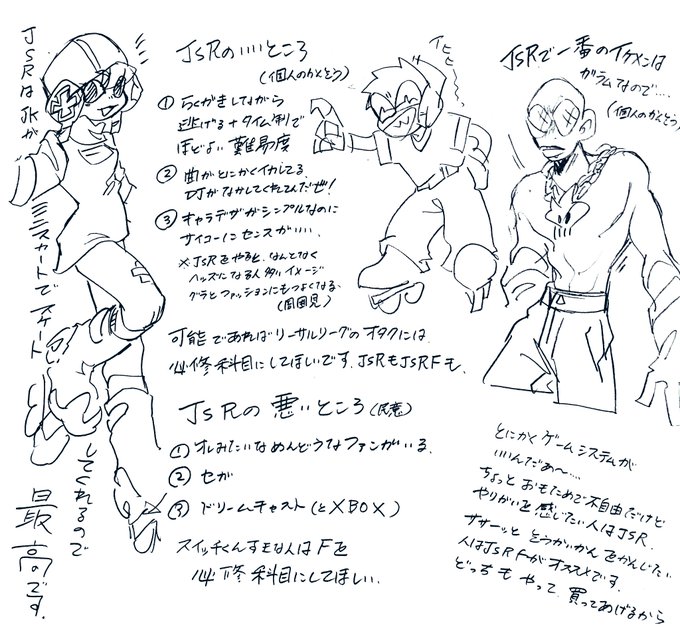 JSRはJKが
ミニスカートでスケート
してくれるので
最高のです。
JSRのいいところ
(個人のかんそう)
① らくがきしてながら
逃げる+タイム制で
ほどよい難易度
② 曲がとにかくイカしてる
DJがながしてくれてんだぜ!
③ キャラデザがシンプルなのに
サイコーにセンスがいい、
※JSRをやると、なんとなく
ヘッズになる人多いイメージ
グラとファッションにもつよくなる、
(周囲見)
可能であればリーサルリーグのオタクには
必修科目にしてほしいです、JSRもJSRFも、
JSRの悪いところ
① オレみたいなめんどうなファンがいる、
② セガ
③ ドリームキャスト(とXBOX)
スイッチくんすきな人はFを
必修科目にしてほしい、
イヒヒ
JSRで一番のイケメンは
ガラムなので....
(個人のかんそう)
とにかくゲームシステムが
いいんだぁ〜....
ちょっとおもためで不自由だけど
やりがいを感じたい人はJSR、
サササーッとそうかいかんをかんじたい
人はJSRFがオススメです、
どっちもやって、買ってあげるから